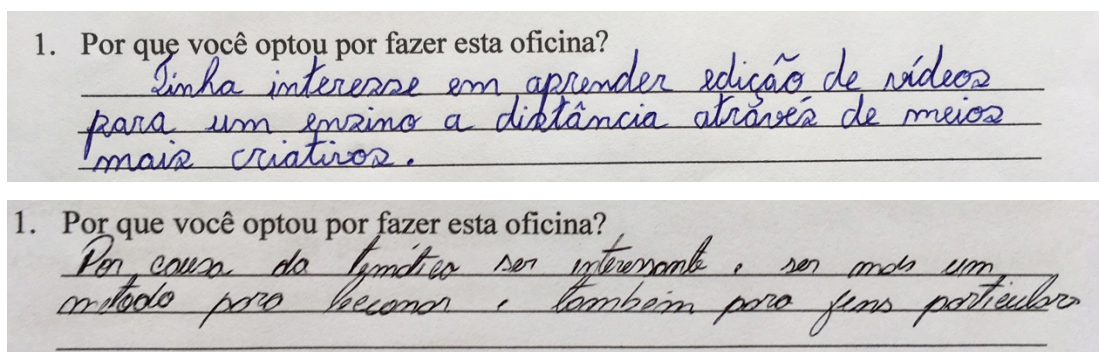 1. Por que você optou por fazer esta oficina?
Tinha interesse em aprender edição de vídeos
para um ensino a distância através de meios
mais criativos.
1. Por que você optou por fazer esta oficina?
Por causa da temática ser interessante, ser mais um
metodo para lecionar e também para fins particulares